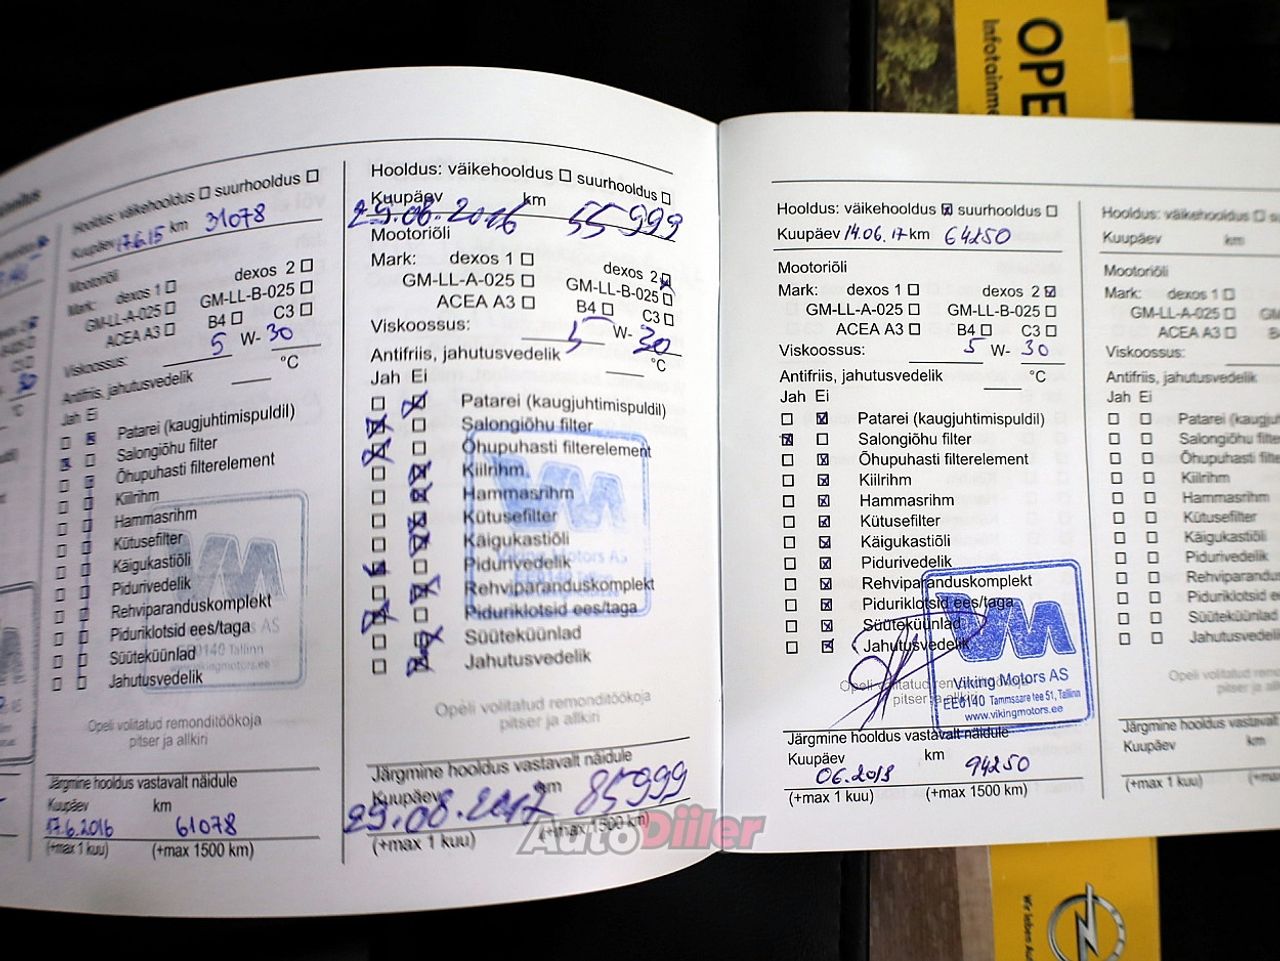 Hooldus: väikehooldus ☐ suurhooldus ☐
Kuupäev 17.6.15 km 31078
Mootoriõli
Mark: dexos 1 ☐ dexos 2 ☐
GM-LL-A-025 ☐ GM-LL-B-025 ☐
ACEA A3 ☐ B4 ☐ C3 ☐
Viskoossus: 5 W- 30
Antifriis, jahutusvedelik ____ °C
Jah Ei
Patarei (kaugjuhtimispuldil)
Salongiõhu filter
Õhupuhasti filterelement
Kiilrihm
Hammasrihm
Kütusefilter
Käigukastiõli
Pidurivedelik
Rehviparanduskomplekt
Piduriklotsid ees/taga
Süüteküünlad
Jahutusvedelik
Opeli volitatud remonditöökoja
pitser ja allkiri
AS
0140 Tallinn
www.vikingmotors.ee
Järgmine hooldus vastavalt näidule
Kuupäev km
17.6.2016 61078
(+max 1 kuu) (+max 1500 km)
Hooldus: väikehooldus ☐ suurhooldus ☐
Kuupäev km
29.08.2016 55999
Mootoriõli
Mark: dexos 1 ☐ dexos 2 ☒
GM-LL-A-025 ☐ GM-LL-B-025 ☐
ACEA A3 ☐ B4 ☐ C3 ☐
Viskoossus: 5 W- 30
Antifriis, jahutusvedelik ____ °C
Jah Ei
Patarei (kaugjuhtimispuldil)
Salongiõhu filter
Õhupuhasti filterelement
Kiilrihm
Hammasrihm
Kütusefilter
Käigukastiõli
Pidurivedelik
Rehviparanduskomplekt
Piduriklotsid ees/taga
Süüteküünlad
Jahutusvedelik
VM
Viking Motors AS
EE0140
Opeli volitatud remonditöökoja
pitser ja allkiri
Järgmine hooldus vastavalt näidule
Kuupäev km
29.08.2017 85999
(+max 1 kuu) (+max 1500 km)
Hooldus: väikehooldus ☒ suurhooldus ☐
Kuupäev 14.06.17 km 64250
Mootoriõli
Mark: dexos 1 ☐ dexos 2 ☒
GM-LL-A-025 ☐ GM-LL-B-025 ☐
ACEA A3 ☐ B4 ☐ C3 ☐
Viskoossus: 5 W- 30
Antifriis, jahutusvedelik ____ °C
Jah Ei
Patarei (kaugjuhtimispuldil)
Salongiõhu filter
Õhupuhasti filterelement
Kiilrihm
Hammasrihm
Kütusefilter
Käigukastiõli
Pidurivedelik
Rehviparanduskomplekt
Piduriklotsid ees/taga
Süüteküünlad
Jahutusvedelik
VM
Viking Motors AS
EE0140 Tammsaare tee 51, Tallinn
www.vikingmotors.ee
Opeli volitatud remonditöökoja
pitser ja allkiri
Järgmine hooldus vastavalt näidule
Kuupäev km
94250
(+max 1 kuu) (+max 1500 km)
Hooldus: väikehooldus ☐
Kuupäev km
Mootoriõli
Mark: dexos 1 ☐
GM-LL-A-025 ☐
ACEA A3 ☐
Viskoossus:
Antifriis, jahutusvedelik
Jah Ei
Patarei (kaugjuhtimispuldil)
Salongiõhu filter
Õhupuhasti filterelement
Kiilrihm
Hammasrihm
Kütusefilter
Käigukastiõli
Pidurivedelik
Piduriklotsid
Süüteküünlad
Jahutusvedelik
Järgmine hooldus vastavalt
Kuupäev km
(+max 1 kuu)
OPE
Infotainme
Wir leben Au
AutoDiiler